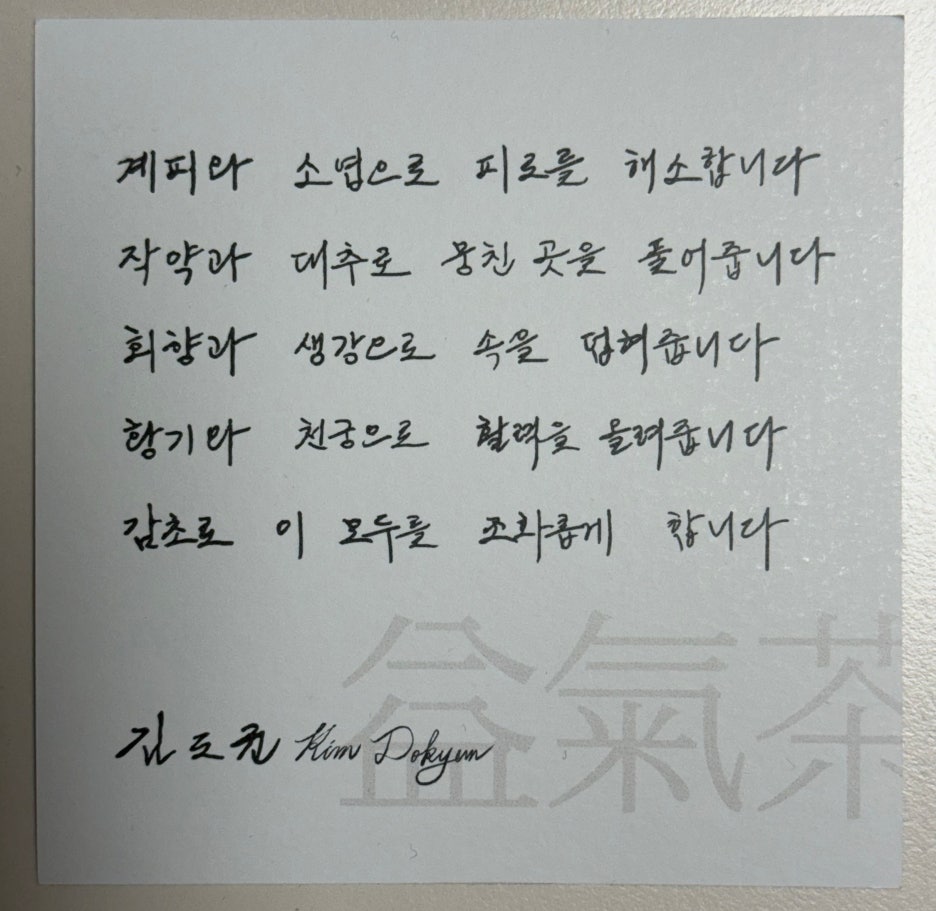 계피와 소엽으로 피로를 해소합니다
작약과 대추로 뭉친 곳을 풀어줍니다
회향과 생강으로 속을 덥혀줍니다
황기와 천궁으로 활력을 올려줍니다
감초로 이 모두를 조화롭게 합니다
益氣茶
김도균 Kim Dokyun